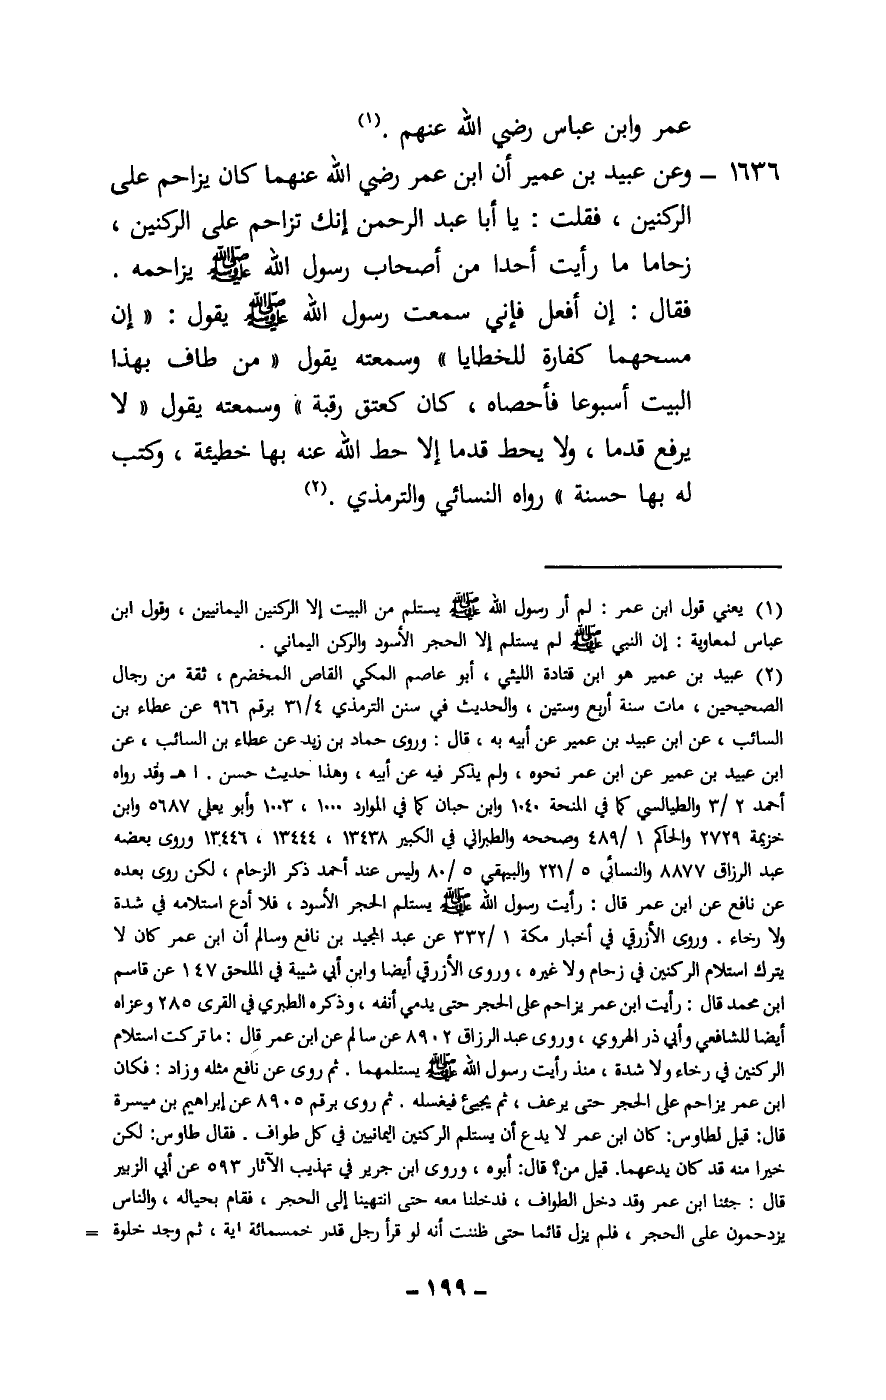 عمر وابن عباس رضي الله عنهم .(١)
١٦٣٦ – وعن عبيد بن عمير أن ابن عمر رضي الله عنهما كان يزاحم على
الركنين ، فقلت : يا أبا عبد الرحمن إنك تزاحم على الركنين ،
زحاما ما رأيت أحدا من أصحاب رسول الله ﷺ يزاحمه .
فقال : إن أفعل فإني سمعت رسول الله ﷺ يقول : « إن
مسحهما كفارة للخطايا » وسمعته يقول « من طاف بهذا
البيت أسبوعا فأحصاه ، كان كعتق رقبة » وسمعته يقول « لا
يرفع قدما ، ولا يحط قدما إلا حط الله عنه بها خطيئة ، وكتب
له بها حسنة » رواه النسائي والترمذي .(٢)
(١) يعني قول ابن عمر : لم أر رسول الله ﷺ يستلم من البيت إلا الركنين اليمانيين ، وقول ابن
عباس لمعاوية : إن النبي ﷺ لم يستلم إلا الحجر الأسود والركن اليماني .
(٢) عبيد بن عمير هو ابن قتادة الليثي ، أبو عاصم المكي القاص المخضرم ، ثقة من رجال
الصحيحين ، مات سنة أربع وستين ، والحديث في سنن الترمذي ٣١/٤ برقم ٩٦٦ عن عطاء بن
السائب ، عن ابن عبيد بن عمير عن أبيه به ، قال : وروى حماد بن زيد عن عطاء بن السائب ، عن
ابن عبيد بن عمير عن ابن عمر نحوه ، ولم يذكر فيه عن أبيه ، وهذا حديث حسن . ا هـ وقد رواه
أحمد ٢ /٣ والطيالسي كما في المنحة ١٠٤٠ وابن حبان كما في الموارد ١٠٠٠ ، ١٠٠٣ وأبو يعلي ٥٦٨٧ وابن
خزيمة ٢٧٢٩ والحاكم ١ /٤٨٩ وصححه والطبراني في الكبير ١٣٤٣٨ ، ١٣٤٤٤ ، ١٣٤٤٦ وروى بعضه
عبد الرزاق ٨٨٧٧ والنسائي ٥ /٢٢١ والبيهقي ٥ /٨٠ وليس عند أحمد ذكر الزحام ، لكن روى بعده
عن نافع عن ابن عمر قال : رأيت رسول الله ﷺ يستلم الحجر الأسود ، فلا أدع استلامه في شدة
ولا رخاء . وروى الأزرقي في أخبار مكة ١ /٣٣٢ عن عبد المجيد بن نافع وسالم أن ابن عمر كان لا
يترك استلام الركنين في زحام ولا غيره ، وروى الأزرقي أيضا وابن أبي شيبة في الملحق ١٤٧ عن قاسم
ابن محمد قال : رأيت ابن عمر يزاحم على الحجر حتى يدمي أنفه ، وذكره الطبري في القرى ٢٨٥ وعزاه
أيضا للشافعي وأبي ذر الهروي ، وروى عبد الرزاق ٨٩٠٢ عن سالم عن ابن عمر قال : ما تركت استلام
الركنين في رخاء ولا شدة ، منذ رأيت رسول الله ﷺ يستلمهما . ثم روى عن نافع مثله وزاد : فكان
ابن عمر يزاحم على الحجر حتى يرعف ، ثم يجيئ فيغسله . ثم روى برقم ٨٩٠٥ عن إبراهيم بن ميسرة
قال: قيل لطاوس: كان ابن عمر لا يدع أن يستلم الركنين اليمانيين في كل طواف . فقال طاوس: لكن
خيرا منه قد كان يدعهما. قيل من؟ قال: أبوه ، وروى ابن جرير في تهذيب الآثار ٥٩٣ عن أبي الزبير
قال : جئنا ابن عمر وقد دخل الطواف ، فدخلنا معه حتى انتهينا إلى الحجر ، فقام بحياله ، والناس
يزدحمون على الحجر ، فلم يزل قائما حتى ظننت أنه لو قرأ رجل قدر خمسمائة اية ، ثم وجد خلوة =
- ١٩٩ -